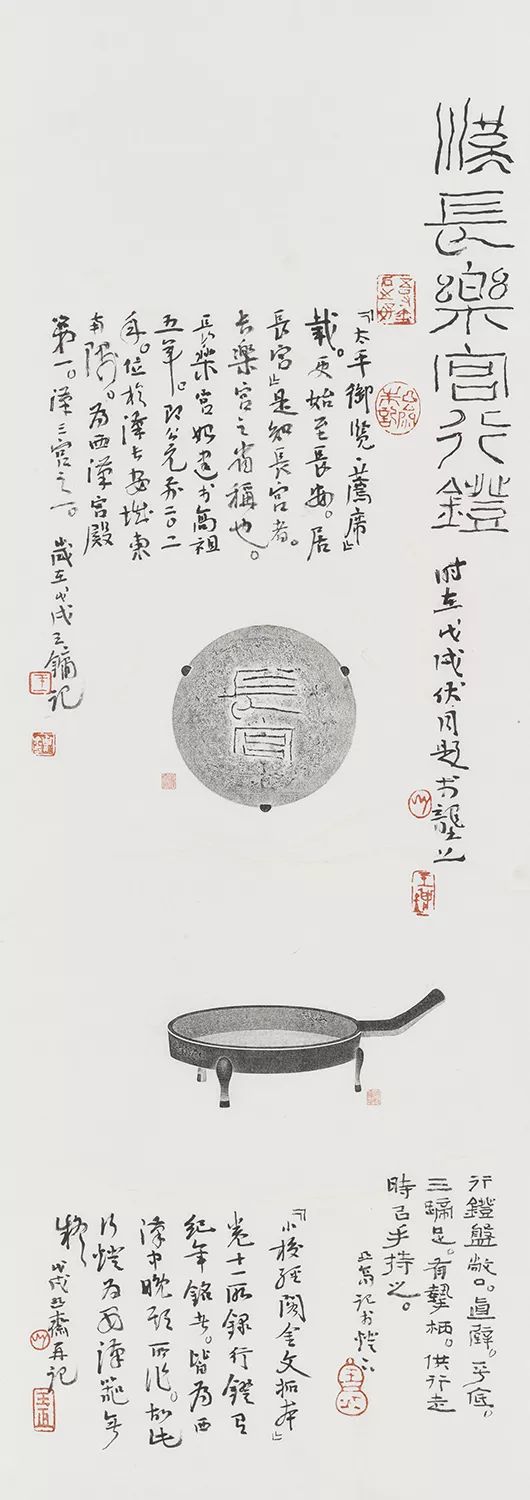 漢長樂宮行鐙
時在戊戌伏月題於
『太平御覽·薦席』
載。更始至長安。居
長宮』是知長宮者。
長樂宮之省稱也。
長樂宮始建於高祖
五年。即公元前二〇二
年。位於漢長安城東
南隅。為西漢宮殿
第一。漢三宮之一。
歲在戊戌王鏞記
長宮
行鐙盤敞口。直壁。平底。
三蹄足。有執柄。供行走
時以手持之。
記於燈下
『小校經閣金文拓本』
卷十一所錄行鐙有
紀年銘者。皆為西
漢中晚期所作。故此
行燈為西漢器無
疑
戊戌再記